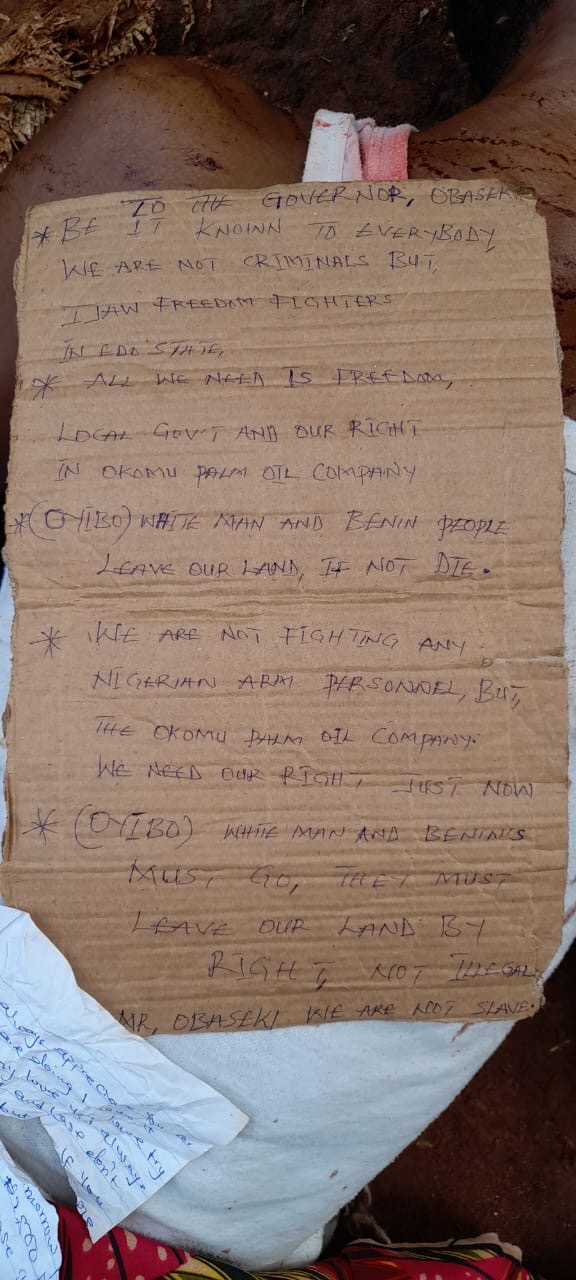 TO THE GOVERNOR, OBASEKI
* BE IT KNOWN TO EVERYBODY,
WE ARE NOT CRIMINALS BUT,
IJAW FREEDOM FIGHTERS
IN EDO STATE,
* ALL WE NEED IS FREEDOM,
LOCAL GOV'T AND OUR RIGHT
IN OKOMU PALM OIL COMPANY
* (OYIBO) WHITE MAN AND BENIN PEOPLE
LEAVE OUR LAND, IF NOT DIE.
* WE ARE NOT FIGHTING ANY
NIGERIAN ARM PERSONNEL, BUT,
THE OKOMU PALM OIL COMPANY.
WE NEED OUR RIGHT JUST NOW
* (OYIBO) WHITE MAN AND BENINS
MUST GO, THEY MUST
LEAVE OUR LAND BY
RIGHT, NOT ILLEGAL.
MR, OBASEKI WE ARE NOT SLAVE.
always appreciate you
are doing I
my love
always.
and
don't
but
If you